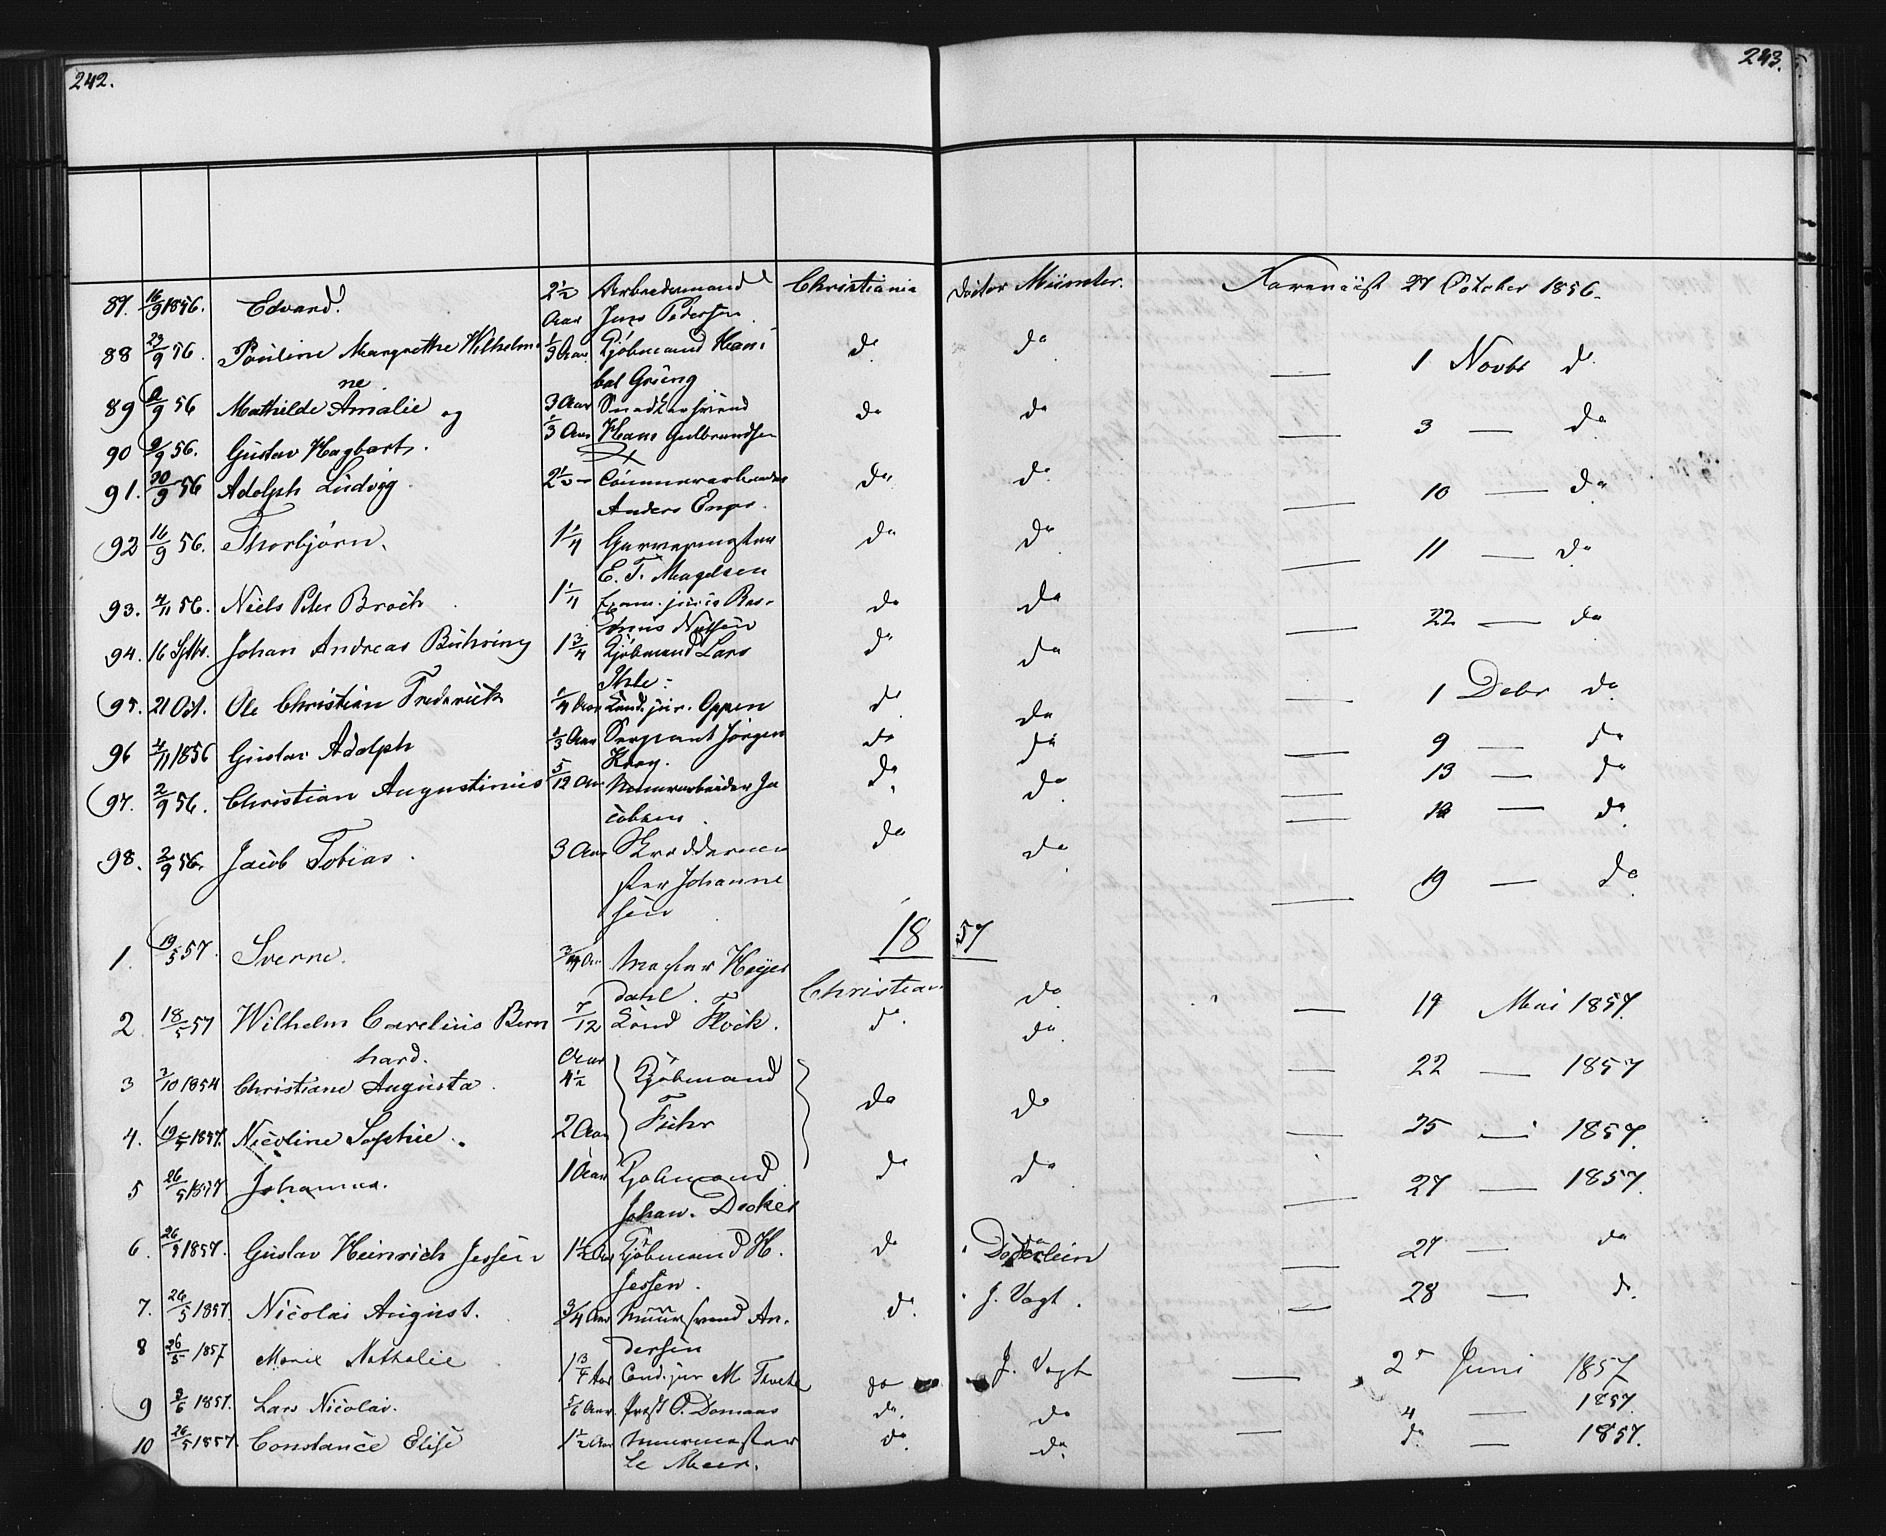 242.
243.
87. 16/9 1856. Edvard. 2 1/2 Aar Arbeidsmand Jens Pedersen Christiania Doctor Münster. Forevist 27 October 1856.
88 23/9 56. Pauline Margrethe Wilhelmi
ne. 1/3 Aar Kjöbmand Hani
bal Grüng do do — 1 Novbr do
89 2/9 56 Mathilde Amalie og 3 Aar Snedkersvend do do — 3 — do
90 9/9 56. Gustav Hagbart. 1/3 Aar Hans Gulbrandsen
91. 30/9 56 Adolph Ludvig 2 1/2 —
Anders Enger. do do — 10 — do
92 16/9 56. Thorbjørn. 1 1/4 Garvermester
E. T. Magelsen do do — 11 — do
93. 4/11 56. Niels Peter Broch 1 1/4 Exam. juris Ras-
mus do do — 22 — do
94. 16 Sptbr. Johan Andreas Bühring 1 3/4 Kjöbmand Lars
Ihle. do do — 1 Debr do
95. 21 Oct. Ole Christian Frederick 1/4 Aar Cand. jur. Oppen do do — 9 — do
96 4/11 1856 Gustav Adolph 1/3 Aar Sergeant Jörgen
Krog. do do — 13 — do
97. 2/9 56. Christian Augustinius 5/12 Aar Murarbeider Ja
cobsen. do do — do
98. 2/9 56. Jacob Tobias. 3 Aar Skredderme
ster Johanne
sen do do — 19 — do
1857
1. 19/5 57. Sverre. 3/4 Aar Mester Heyer
dahl. Christian do — 19 Mai 1857.
2 18/5 57 Wilhelm Carelius Bern
hard. 7/12 Aar Cand Flock. do do — 22 — 1857
3 7/10 1854 Christiane Augusta. 4 1/2 Kjöbmand
4. 19/5 1857. Nicoline Sophie. 2 Aar Fuhr do do — 25 — 1857.
5 26/5 1857 Johanna. 1 Aar Kjöbmand
Johan. Decker do do — 27 — 1857.
6. 26/5 1857. Gustav Heinrich Jessen 1 1/2 Aar Kjöbmand H.
Jessen. do Döderlein — 27 — do
7. 26/5 1857. Nicolai August. 3/4 Aar Muursvend An-
dersen do. J. Vogt. — 28 — do.
8 26/5 1857 Marie Nathalie 1 Aar Cand. jur M do J. Vogt — 2 Juni 1857
9 2/6 1857. Lars Nicolai. 5/6 Aar. Præst O. Domaas do. do 4 — 1857
10 26/5 1857 Constance Elise 1 1/2 Aar Muurmester
le Meer. do. do. — do — 1857.